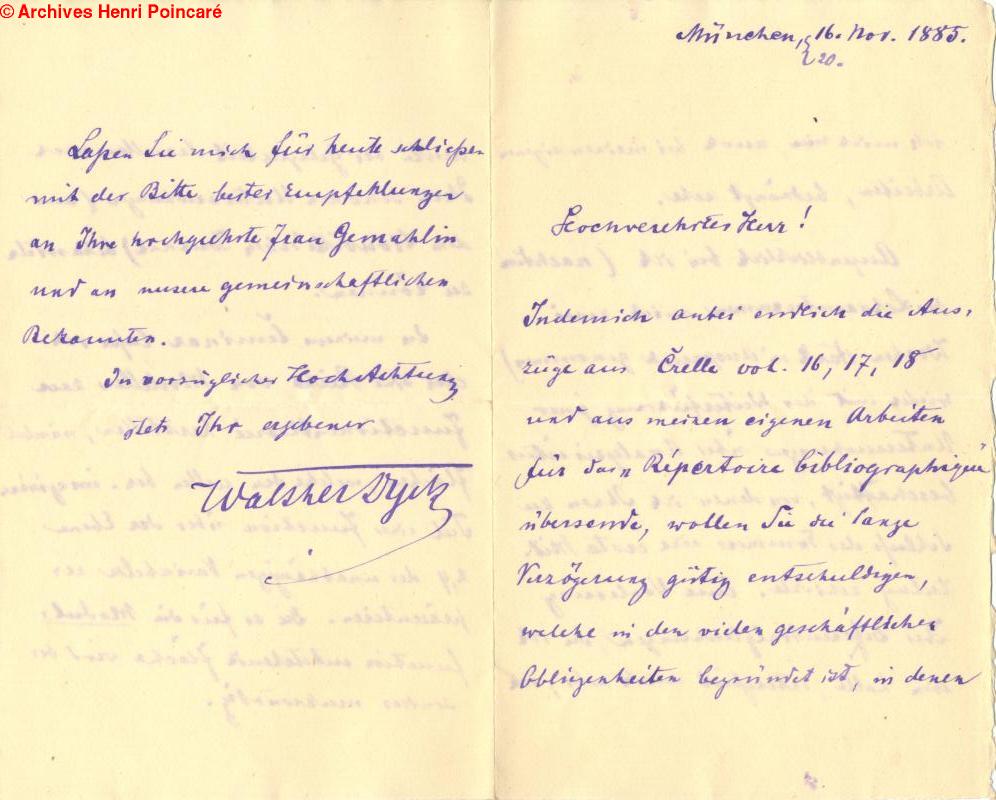 © Archives Henri Poincaré
München, 16. Nov. 1885.
20.
Hochverehrter Herr!
Indem ich anbei endlich die Aus-
züge aus Crelle vol. 16, 17, 18
und aus meinen eigenen Arbeiten
für das Répertoire bibliographique
übersende, wollen Sie die lange
Verzögerung gütig entschuldigen,
welche in den vielen geschäftlichen
Obliegenheiten begründet ist, in denen
Laßen Sie mich für heute schließen
mit der Bitte bester Empfehlungen
an Ihre hochgeehrte Frau Gemahlin
und an unsere gemeinschaftlichen
Bekannten.
In vorzüglicher Hochachtung
stets Ihr ergebener
Walther Dyck